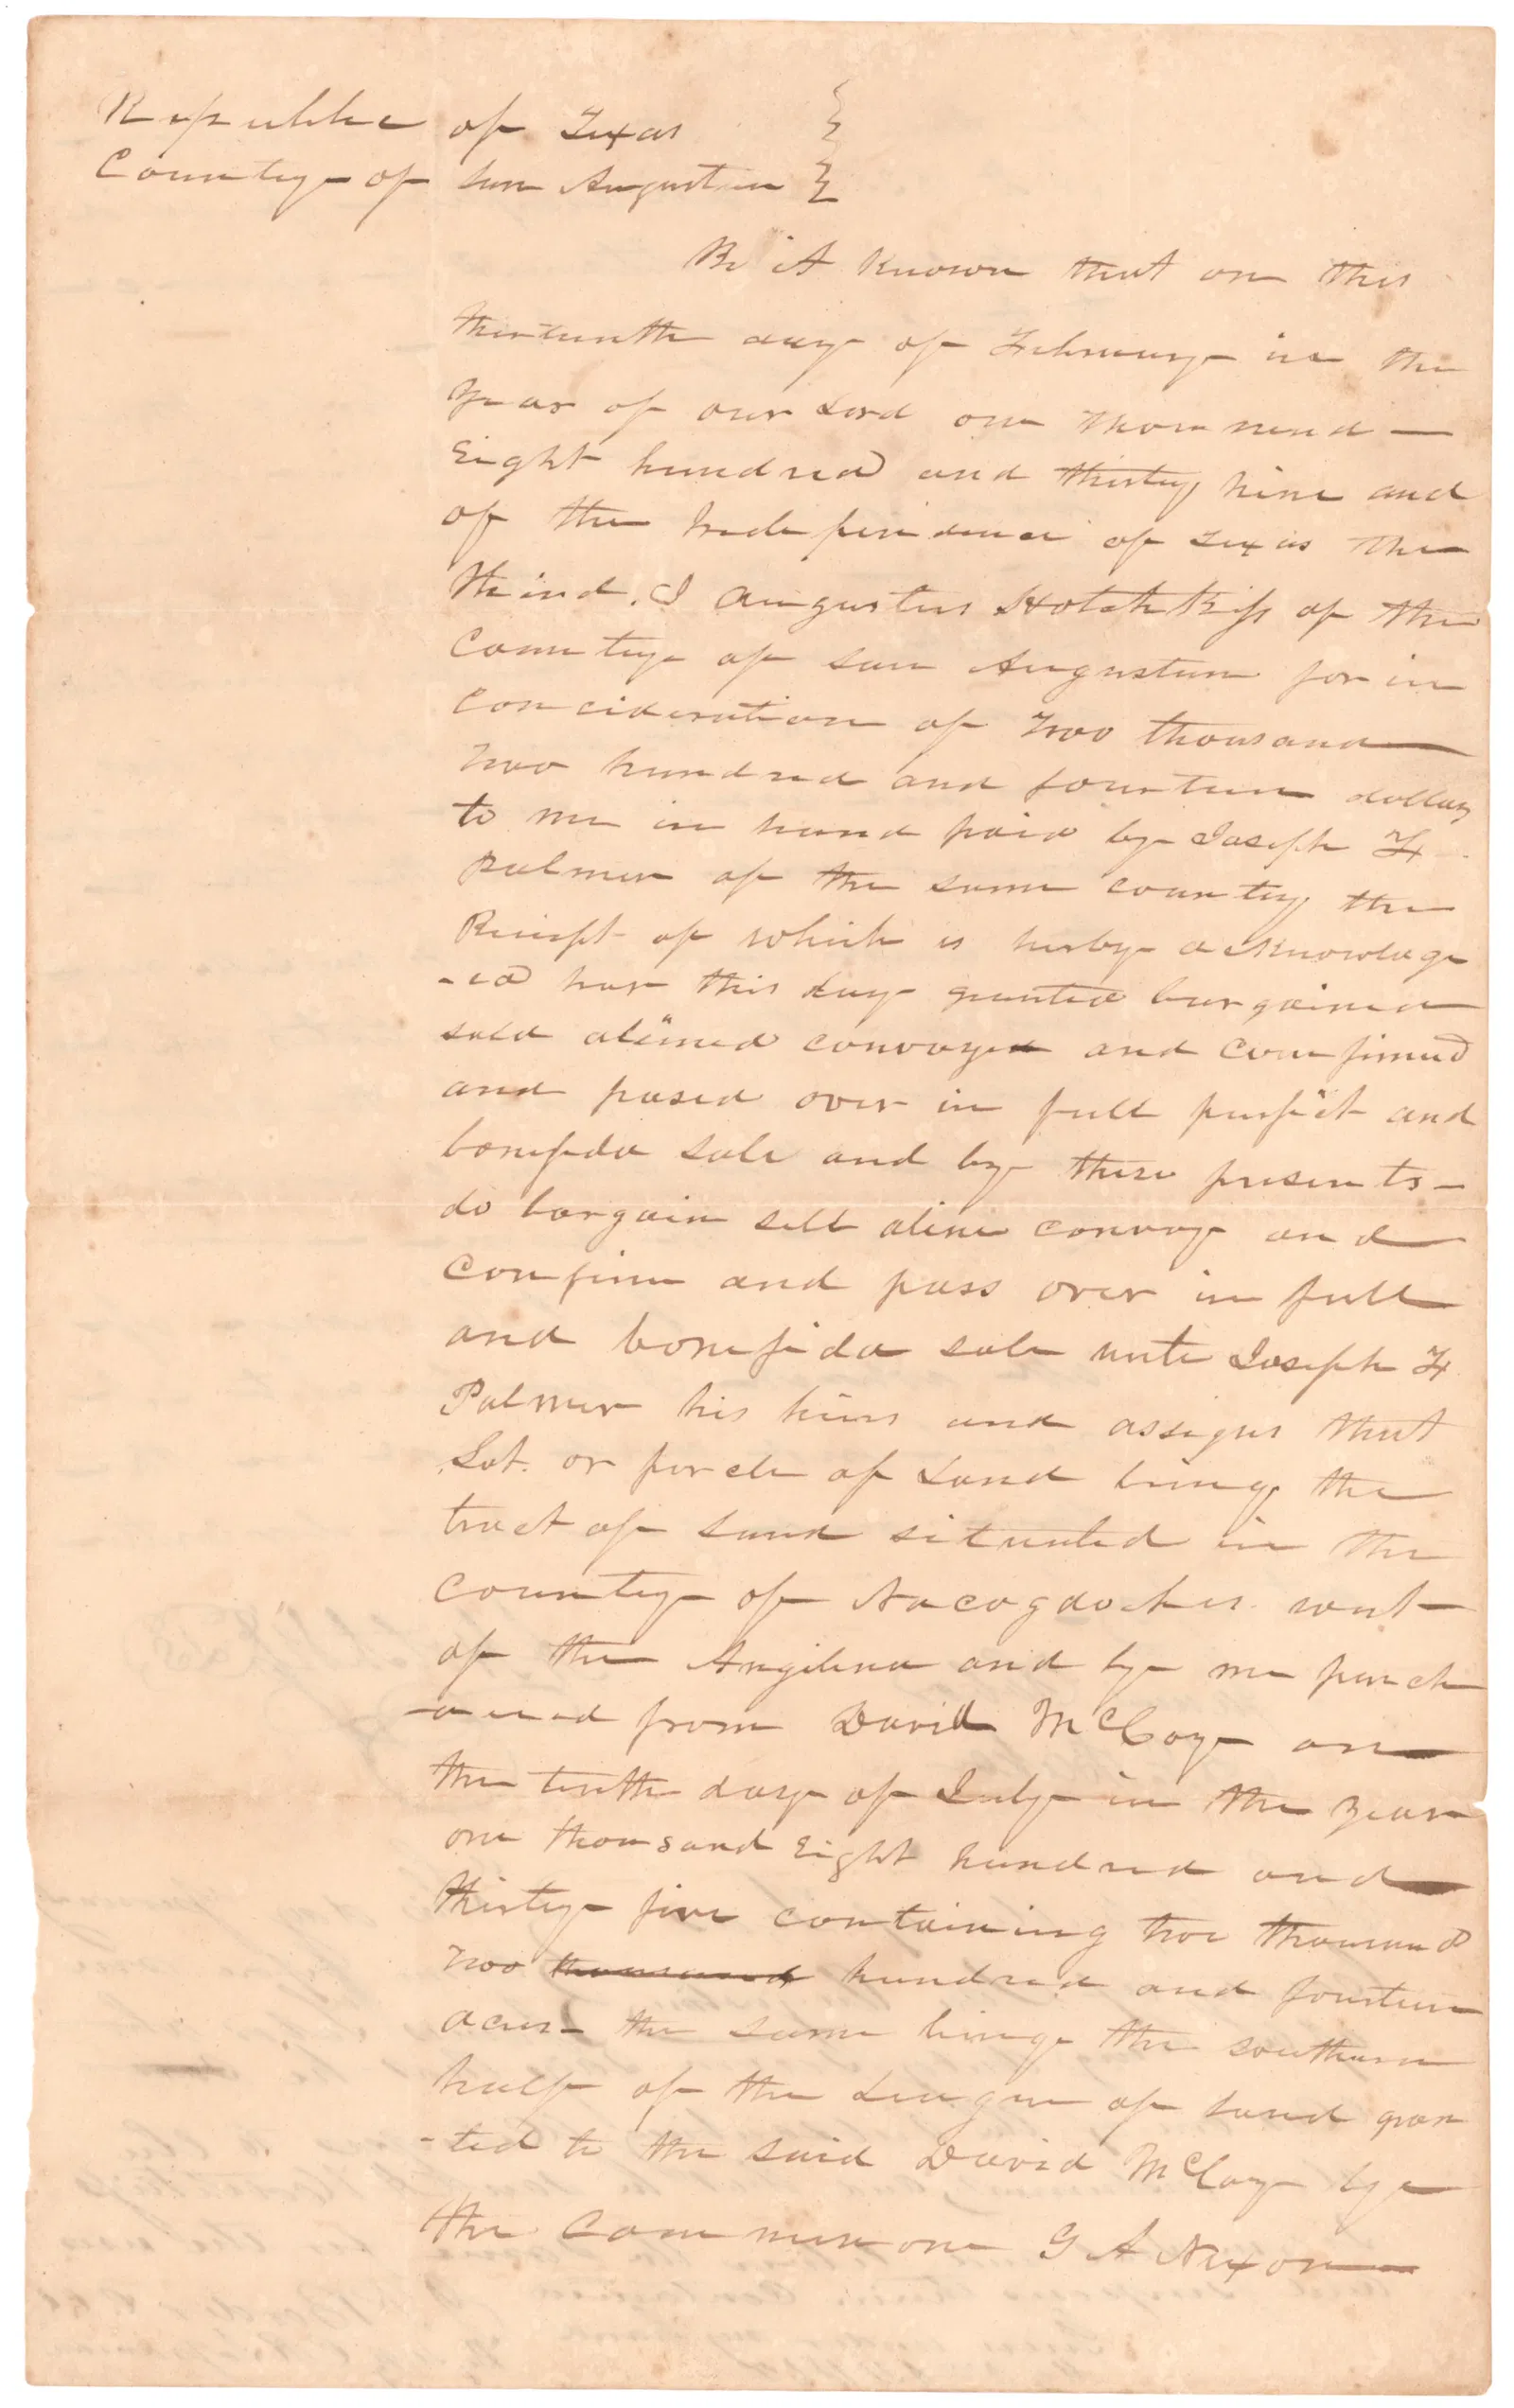 Republic of Texas
County of San Augustin
Be it Known that on this
thirteenth day of February in the
year of our Lord one thousand —
Eight hundred and thirty nine and
of the Independence of Texas the
third. I Augustus Hotchkiss of the
County of San Augustin for in
concideration of Two thousand
Two hundred and fourteen dollars
to me in hand paid by Joseph H
Palmer of the same county the
Receipt of which is herby acknowledge
-ed has this day granted bargained
sold aliened convayed and confirmed
and pased over in full perfect and
bonefida sale and by these presents -
do bargain sell aline convay and
confirm and pass over in full
and bonefida sale unto Joseph H
Palmer his heirs and assigns that
Lot or percle of Land being the
tract of Land situated in the
County of Nacogdoches west
of the Angelina and by me purch
-ased from David McCoy on
the tenth day of July in the year
one thousand Eight hundred and
thirty five containing two thousand
two thousand hundred and fourteen
acres the same being the southern
half of the League of Land gran
-ted to the said David McCoy by
the G A Nixon